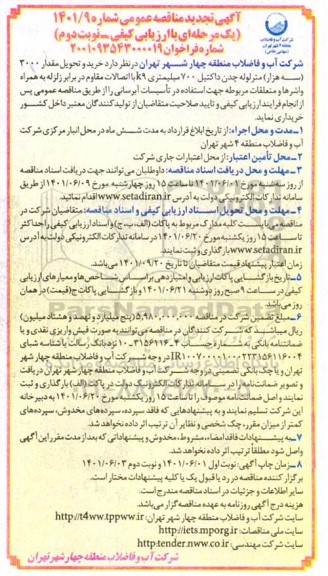 آگهی تجدید مناقصه عمومی شماره ۱۴۰۱/۹
(یک مرحله‌ای با ارزیابی کیفی ـ نوبت دوم)
شماره فراخوان ۲۰۰۱۰۹۳۵۴۳۰۰۰۰۱۹
شرکت آب و فاضلاب منطقه ۴ شهر تهران
(سهامی خاص)
شرکت آب و فاضلاب منطقه چهار شهر تهران در نظر دارد خرید و تحویل مقدار ۳۰۰۰
(سه هزار) متر لوله چدن داکتیل ۷۰۰ میلیمتری k۹ با اتصالات مقاوم در برابر زلزله به همراه
واشرها و متعلقات مربوطه جهت استفاده در تأسیسات آبرسانی را از طریق مناقصه عمومی پس
از انجام فرایند ارزیابی کیفی و تایید صلاحیت متقاضیان از تولیدکنندگان معتبر داخل کشور
خریداری نماید.
۱ـ مدت و محل اجراء: از تاریخ ابلاغ قرارداد به مدت شش ماه در محل انبار مرکزی شرکت
آب و فاضلاب منطقه ۴ شهر تهران
۲ـ محل تأمین اعتبار: از محل اعتبارات جاری شرکت
۳ـ مهلت و محل دریافت اسناد مناقصه: داوطلبان می‌توانند جهت دریافت اسناد مناقصه
از روز سه‌شنبه مورخ ۱۴۰۱/۰۶/۰۱ تا ساعت ۱۵ روز چهارشنبه مورخ ۱۴۰۱/۰۶/۰۹ از طریق
سامانه تدارکات الکترونیکی دولت به آدرس www.setadiran.ir اقدام نمائید.
۴ـ مهلت و محل تحویل اسناد ارزیابی کیفی و اسناد مناقصه: متقاضیان شرکت در
مناقصه می‌بایست کلیه مدارک مربوط به پاکات (الف، ب، ج) و اسناد ارزیابی کیفی را حداکثر
تا ساعت ۱۵ روز یکشنبه مورخ ۱۴۰۱/۰۶/۲۰ در سامانه تدارکات الکترونیکی دولت به آدرس
www.setadiran.ir بارگذاری و ثبت نمایند.
زمان اعتبار پیشنهاد قیمت متقاضیان تا تاریخ ۱۴۰۱/۰۹/۲۰ می‌باشد.
۵ـ تاریخ بازگشایی پاکات ارزیابی و امتیازدهی بر اساس شاخص‌ها و معیارهای ارزیابی
کیفی در ساعت ۹ صبح روز دوشنبه ۱۴۰۱/۰۶/۲۱ و بازگشایی پاکات ج (قیمت) در همان
روز می‌باشد.
۶ـ مبلغ تضمین شرکت در مناقصه ۵,۹۸۰,۰۰۰,۰۰۰ (پنج میلیارد و نهصد و هشتاد میلیون)
ریال می‎باشد که شرکت کنندگان در مناقصه می‌توانند به صورت فیش واریزی نقدی و یا
ضمانتنامه بانکی به شماره حساب
در وجه شرکت آب و فاضلاب منطقه چهار شهر
تهران و یا چک بانکی تضمینی در وجه شرکت آب و فاضلاب منطقه چهار شهر تهران دریافت
و تصویر ضمانت‌نامه را در سامانه تدارکات الکترونیک دولت در پاکت (الف) بارگذاری و ثبت
نمایند و اصل ضمانتنامه موصوف را تا ساعت ۱۵ روز یکشنبه مورخ ۱۴۰۱/۰۶/۲۰ به دبیرخانه
این شرکت تسلیم نمایند و به پیشنهادهایی که فاقد سپرده، سپرده‌های مخدوش، سپرده‌های
کمتر از میزان مقرر، چک شخصی و نظایر آن ترتیب اثر داده نخواهد شد.
۷ـ به پیشنهادات فاقد امضاء، مشروط، مخدوش و پیشنهاداتی که بعد از مدت مقرر این آگهی
واصل شود مطلقاً ترتیب اثر داده نخواهد شد.
۸ـ زمان چاپ آگهی: نوبت اول ۱۴۰۱/۰۶/۰۱ و نوبت دوم ۱۴۰۱/۰۶/۰۳
برگزار کننده مناقصه در رد یا قبول یک یا کلیه پیشنهادات مختار است.
سایر اطلاعات و جزئیات در اسناد مناقصه مندرج است.
هزینه درج آگهی روزنامه به عهده مناقصه گزار می‌باشد.
سایت شرکت آب و فاضلاب منطقه چهار شهر تهران: http://t4ww.tppww.ir
سایت ملی مناقصات: http://iets.mporg.ir
سایت شرکت مهندسی: http:tender.nww.co.ir
شرکت آب و فاضلاب منطقه چهار شهر تهران